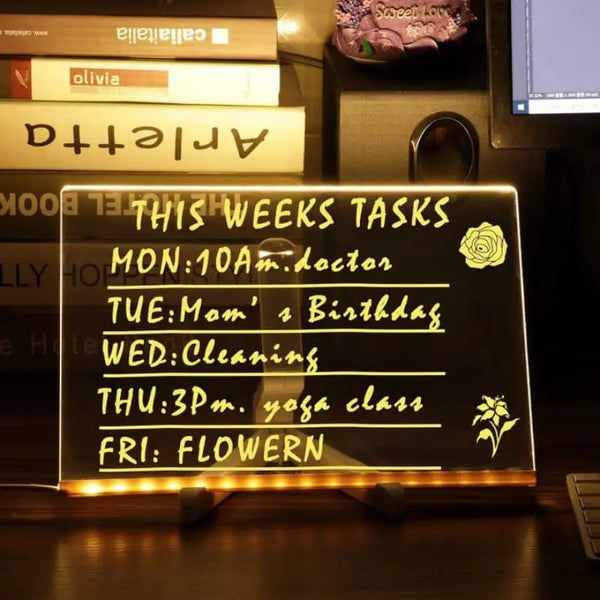 callaitalia
olivia
Arletta
THE HOTEL BOOK
LLY HOPPEN STYL
Sweet Love
THIS WEEKS TASKS
MON:10Am.doctor
TUE:Mom's Birthday
WED:Cleaning
THU:3Pm. yoga class
FRI: FLOWERN